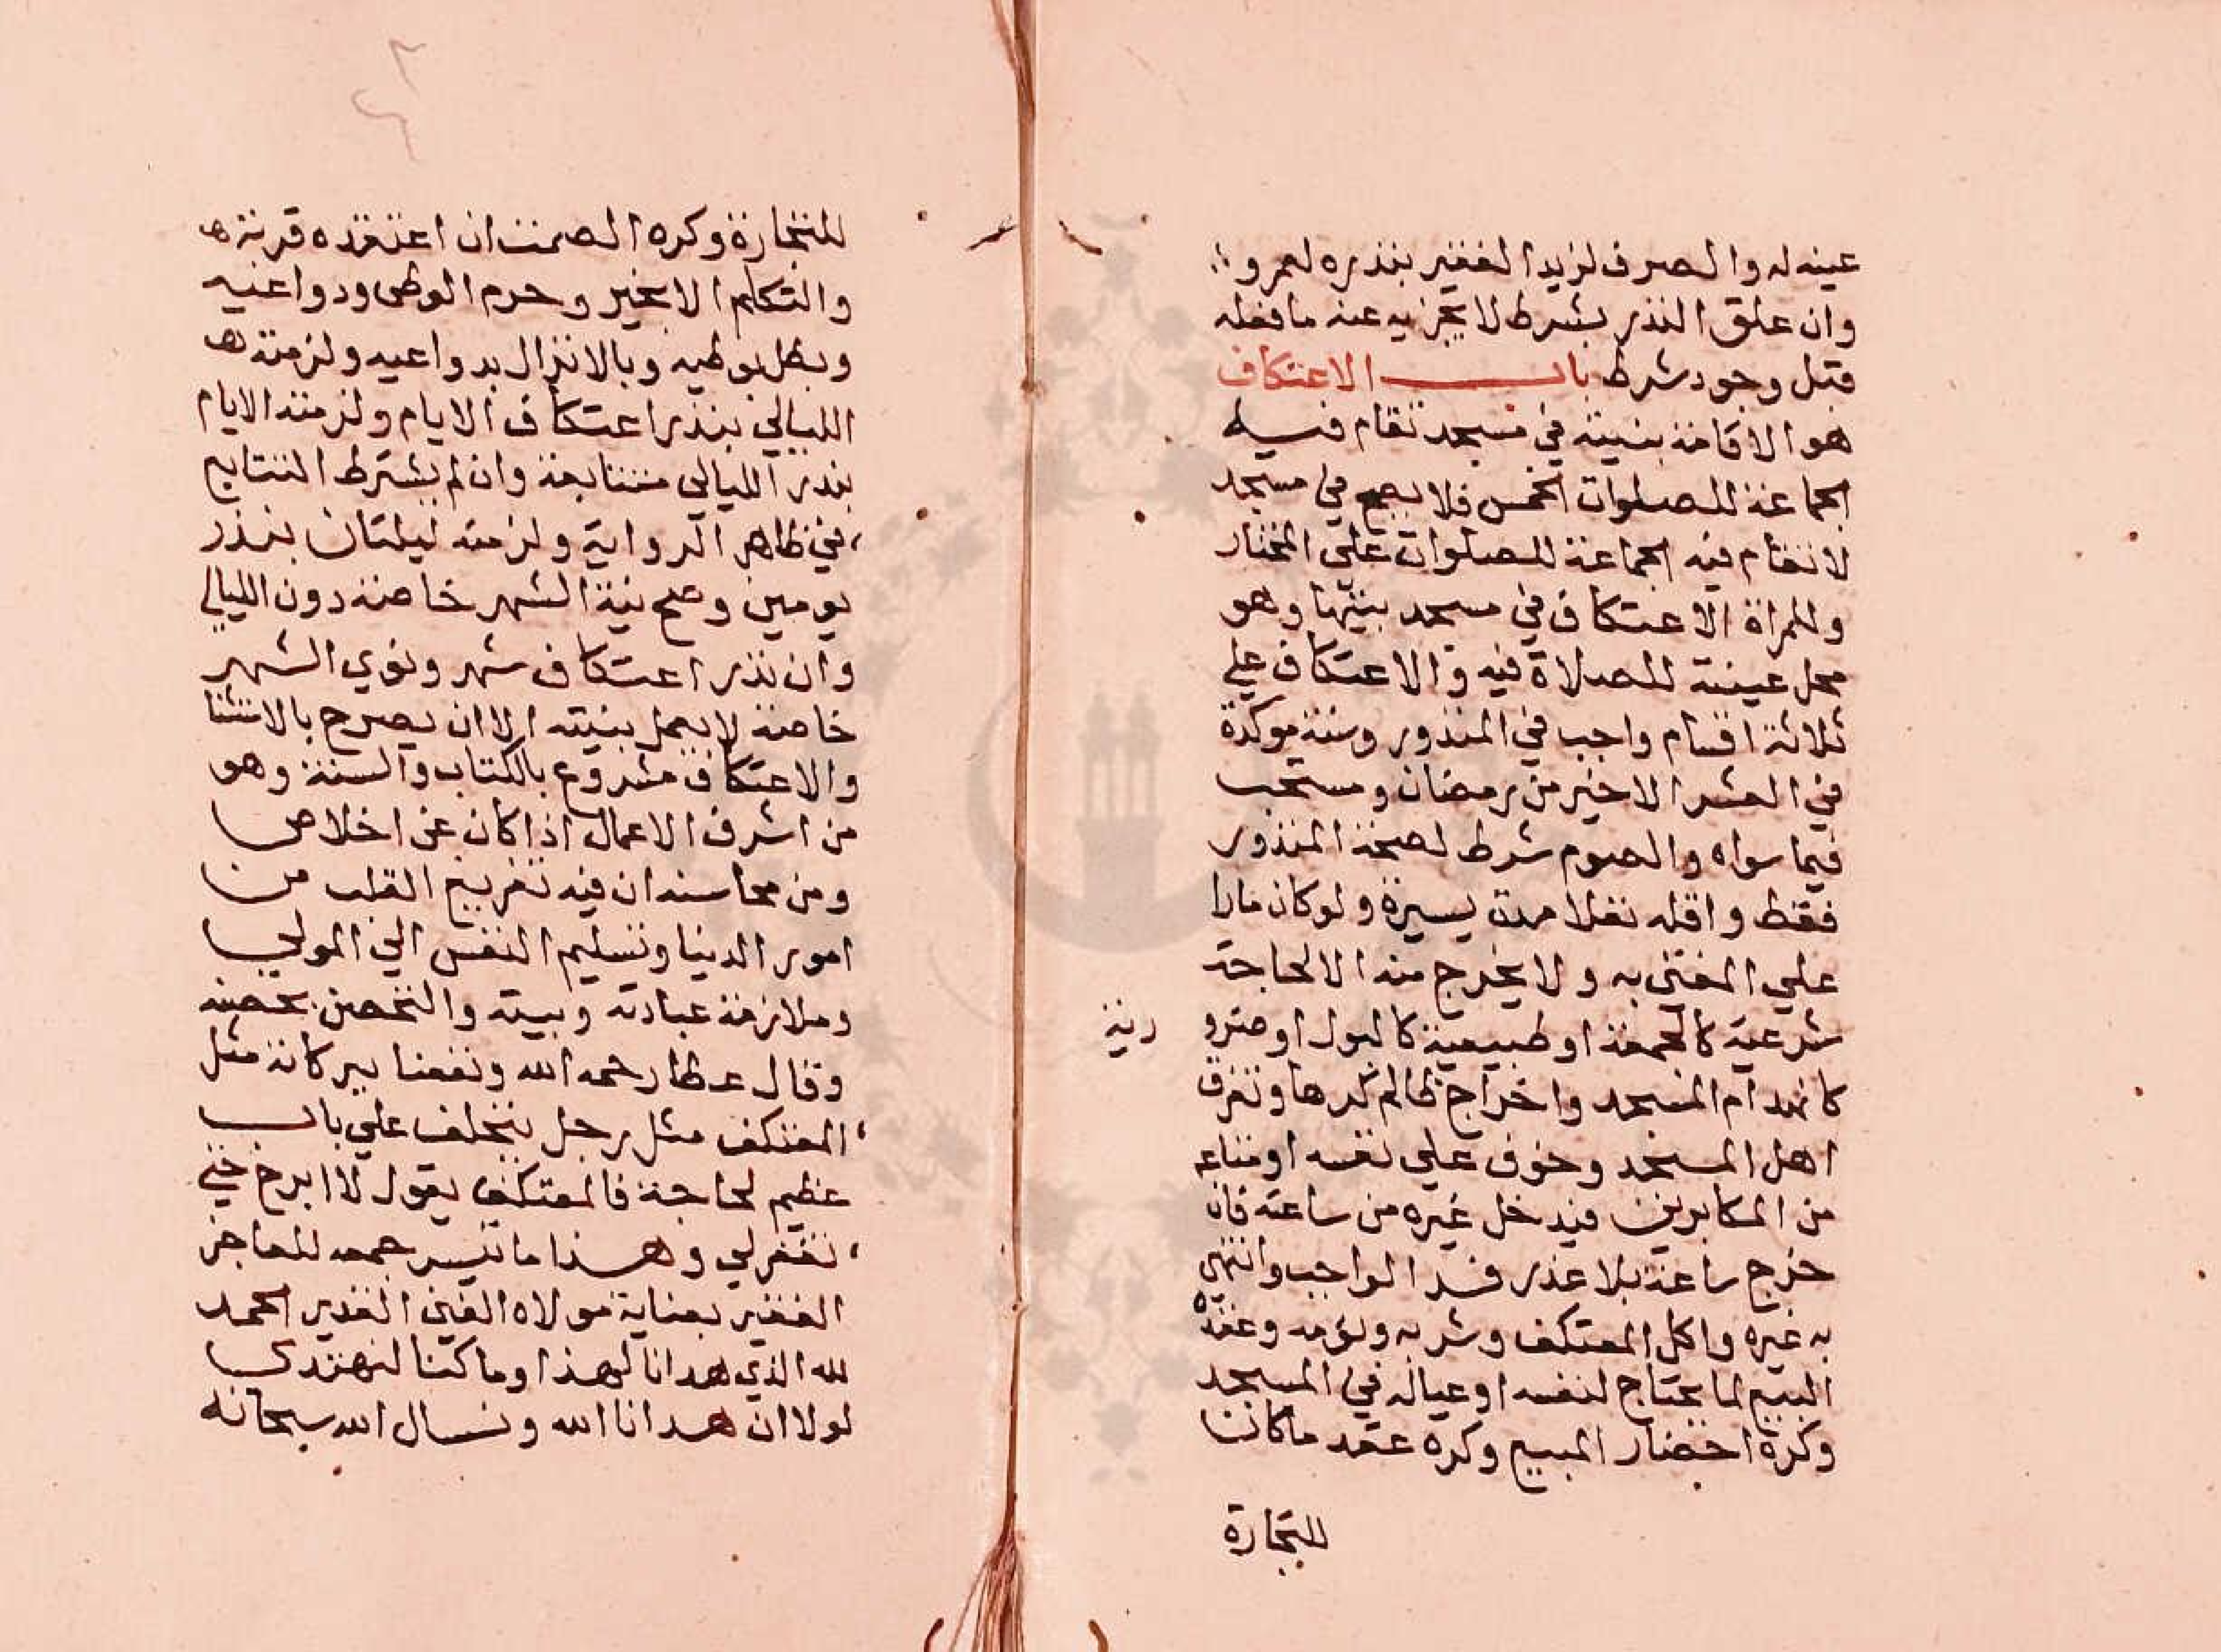 عينه له والصرف لزيد الفقير بنذره لعمرو
وان علق النذر بشرط لا يجزيه عنه ما فعله
قبل وجود شرط باب الاعتكاف
هو الاقامة بنيته في مسجد تقام فيه
الجماعة للصلوات الخمس فلا يصح في مسجد
لا تقام فيه الجماعة للصلوات علي المختار
وللمراة الاعتكاف في مسجد بيتها وهو
محل عينته للصلاة فيه والاعتكاف علي
ثلاثة اقسام واجب في المنذور وسنة موكدة
في العشر الاخير من رمضان ومستحب
فيما سواه والصوم شرط لصحة المنذور
فقط واقله نفلا مدة يسيرة ولو كان مارا
علي المفتي به ولا يخرج منه الا لحاجة
شرعية كالجمعة او طبيعية كالبول او ضرو رية
كانهدام المسجد واخراج ظالم كرها وتفرق
اهل المسجد وخوف علي نفسه او متاعه
من المكابرين فيدخل غيره من ساعته فان
خرج ساعة بلا عذر فسد الواجب وانتهي
به غيره واكل المعتكف وشربه ونومه وعقده
البيع لما يحتاج لنفسه او عياله في المسجد
وكره احضار المبيع وكره عقد ما كان
للتجارة
للتجارة وكره الصمت ان اعتقده قربة ه
والتكلم الا بخير وحرم الوطي ودواعيه
وبطل بوطيه وبالانزال بدواعيه ولزمته ه
الليالي بنذر اعتكاف الايام ولزمته الايام
بنذر الليالي متتابعة وان لم يشترط التتابع
في ظاهر الرواية ولزمته ليلتان بنذر
يومين وصح نية الشهر خاصة دون الليالي
وان نذر اعتكاف شهر ونوي الشهر
خاصة لا يعمل بنيته الا ان يصرح بالاستثنا
والاعتكاف مشروع بالكتاب والسنة وهو
من اشرف الاعمال اذا كان عن اخلاص
ومن محاسنه ان فيه تفريغ القلب من
امور الدنيا وتسليم النفس الي المولي
وملازمة عبادته وبيته والتحصن بحصنه
وقال عطا رحمه الله ونفعنا ببركاته مثل
المعتكف مثل رجل يختلف علي باب
عظيم لحاجة فالمعتكف يقول لا ابرح حتي
تغفر لي وهذا ما تيسر جمعه للعاجز
الفقير بعناية مولاه الغني القدير الحمد
لله الذي هدانا لهذا وما كنا لنهتدي
لولا ان هدانا الله ونسال الله سبحانه